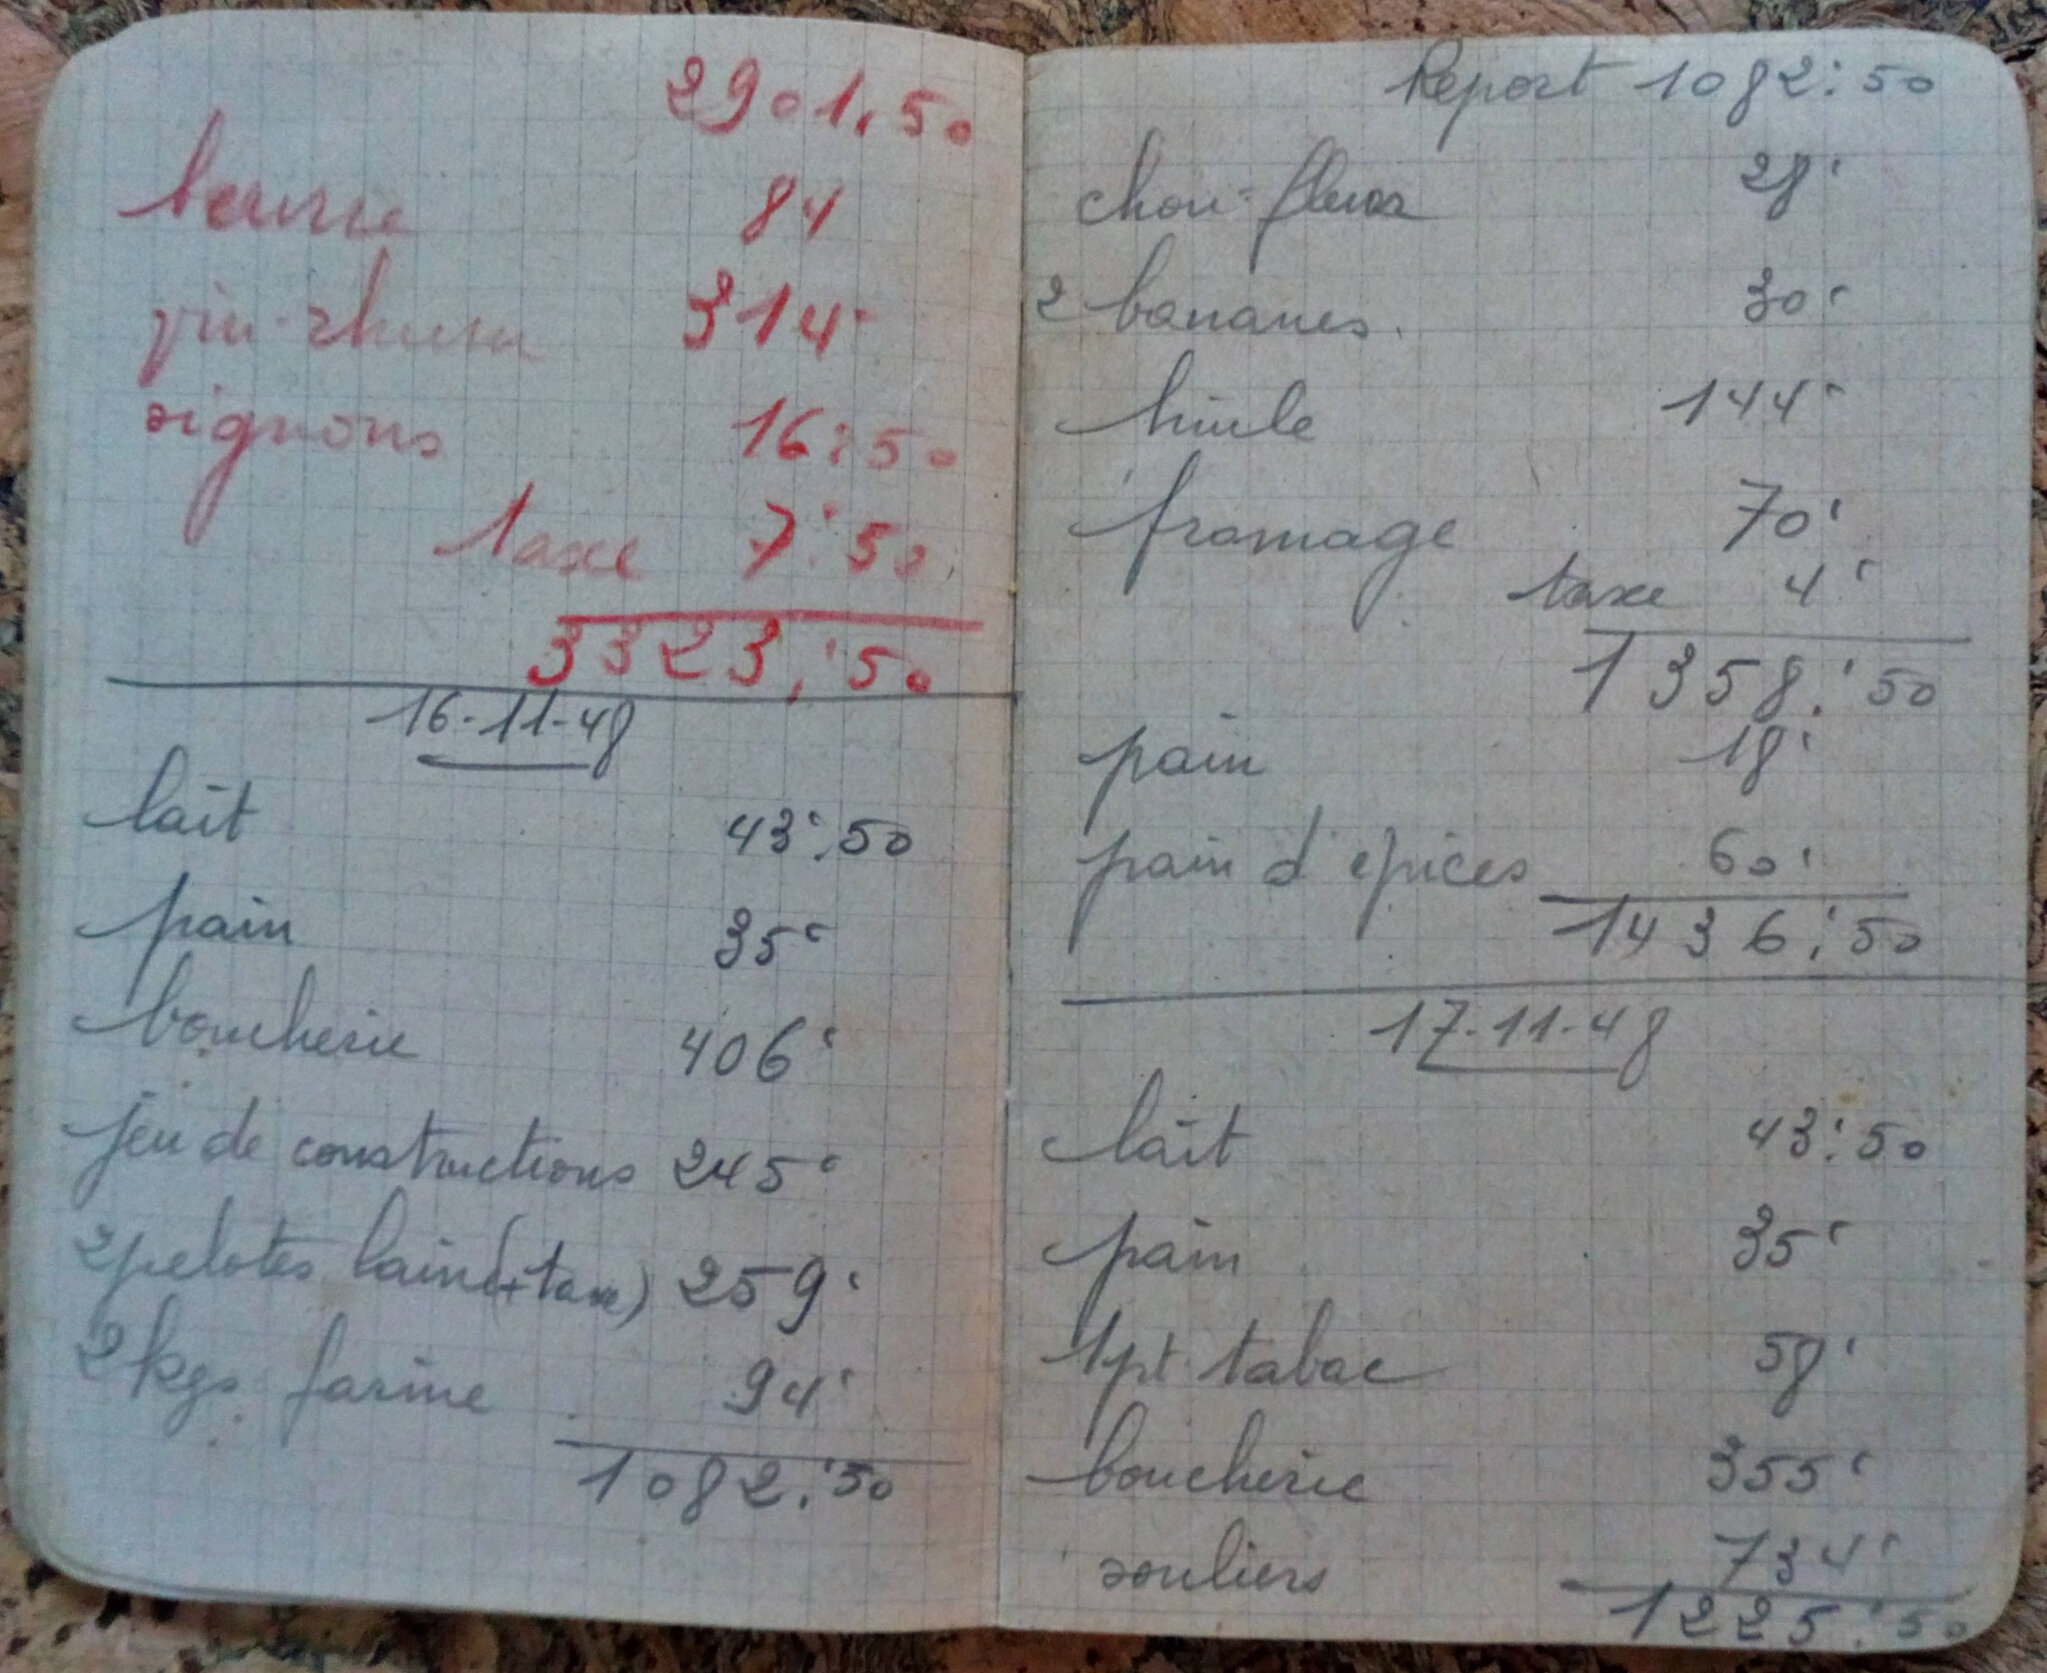 2901,50
beurre 84
vin-rhum 314'
oignons 16:50
taxe 7:50
3323,'50
16-11-48
lait 43:50
pain 35'
boucherie 406'
jeu de constructions 245'
2 pelotes laine (+taxe) 259'
2 kgs farine 94'
1082:50
Report 1082:50
chou-fleur 28'
2 bananes. 30'
huile 144'
fromage 70'
taxe 4'
1358:50
pain 18'
pain d'epices 60'
1436:50
17-11-48
lait 43:50
pain 35'
1 pt tabac 58'
boucherie 355'
souliers 734'
1225:50